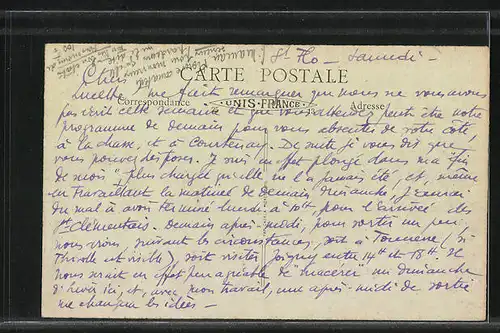 St Flo - Samedi -
CARTE POSTALE
Correspondance
UNIS-FRANCE
Adresse
Chers
Lucette me fait remarquer que nous ne vous avons
pas écrit cette semaine et que vous attendez peut être notre
programme de demain pour vous absenter de votre côté,
à la chasse, et à Courtenay. De suite je vous dis que
vous pouvez disposer. Je suis en effet plongé dans ma fin
de mois plus chargée qu'elle ne l'a jamais été, et, même
en travaillant la matinée de demain dimanche, j'aurai
du mal à avoir terminé lundi à 10h, pour l'arrivée des
Clémentais. Demain après-midi, pour sortir un peu,
nous irons, suivant les circonstances, soit à (si
est visible), soit visiter Joigny entre 14h et 18h. Il
nous serait en effet peu agréable de macérer un dimanche
d'hiver ici, et, avec mon travail, une après-midi de sortie
me changera les idées -